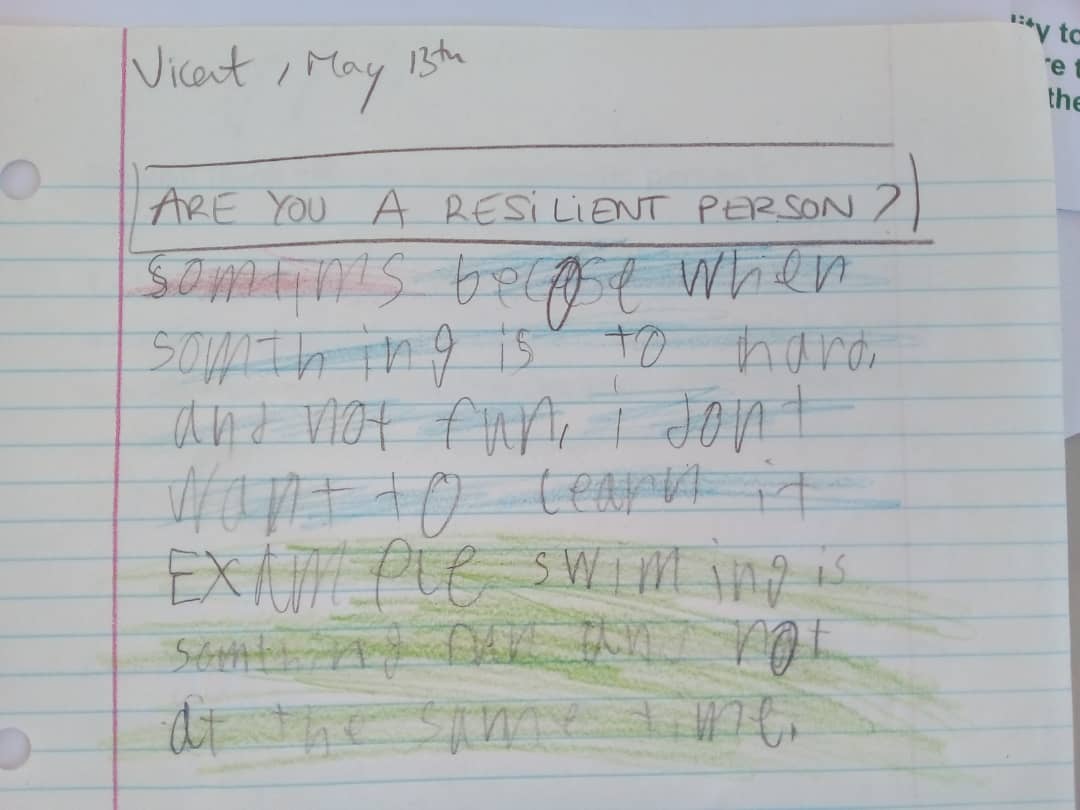 Vicent, May 13th
ARE YOU A RESiLiENT PERSON?
somtims becose when
somthing is to hard,
and not fun, i dont
want to learn it
EXAMPLE swiming is
somthing fun and not
at the same time.
lity to
re t
the